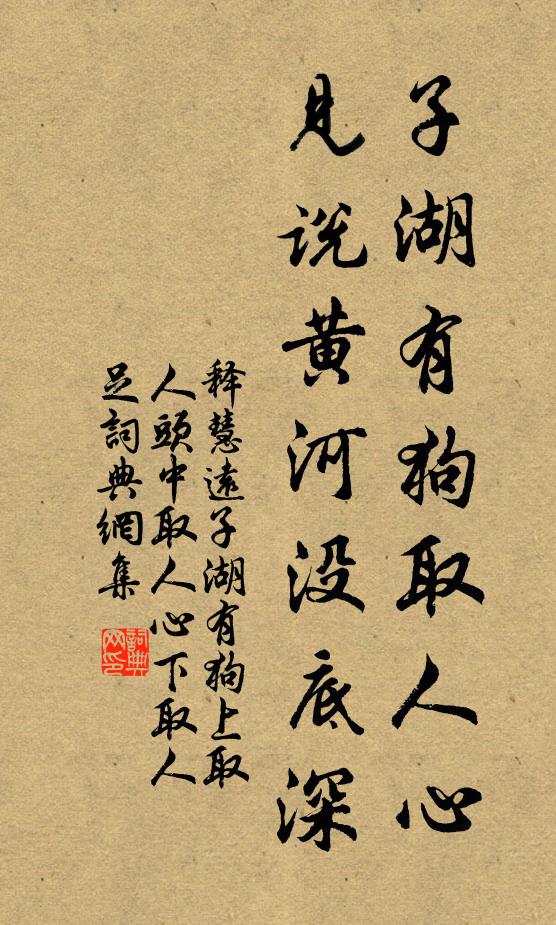 子湖有狗取人心
見说黄河没底深
释慧遠子湖有狗上取
人頭中取人心下取人
足詞典網集
詞典
网印